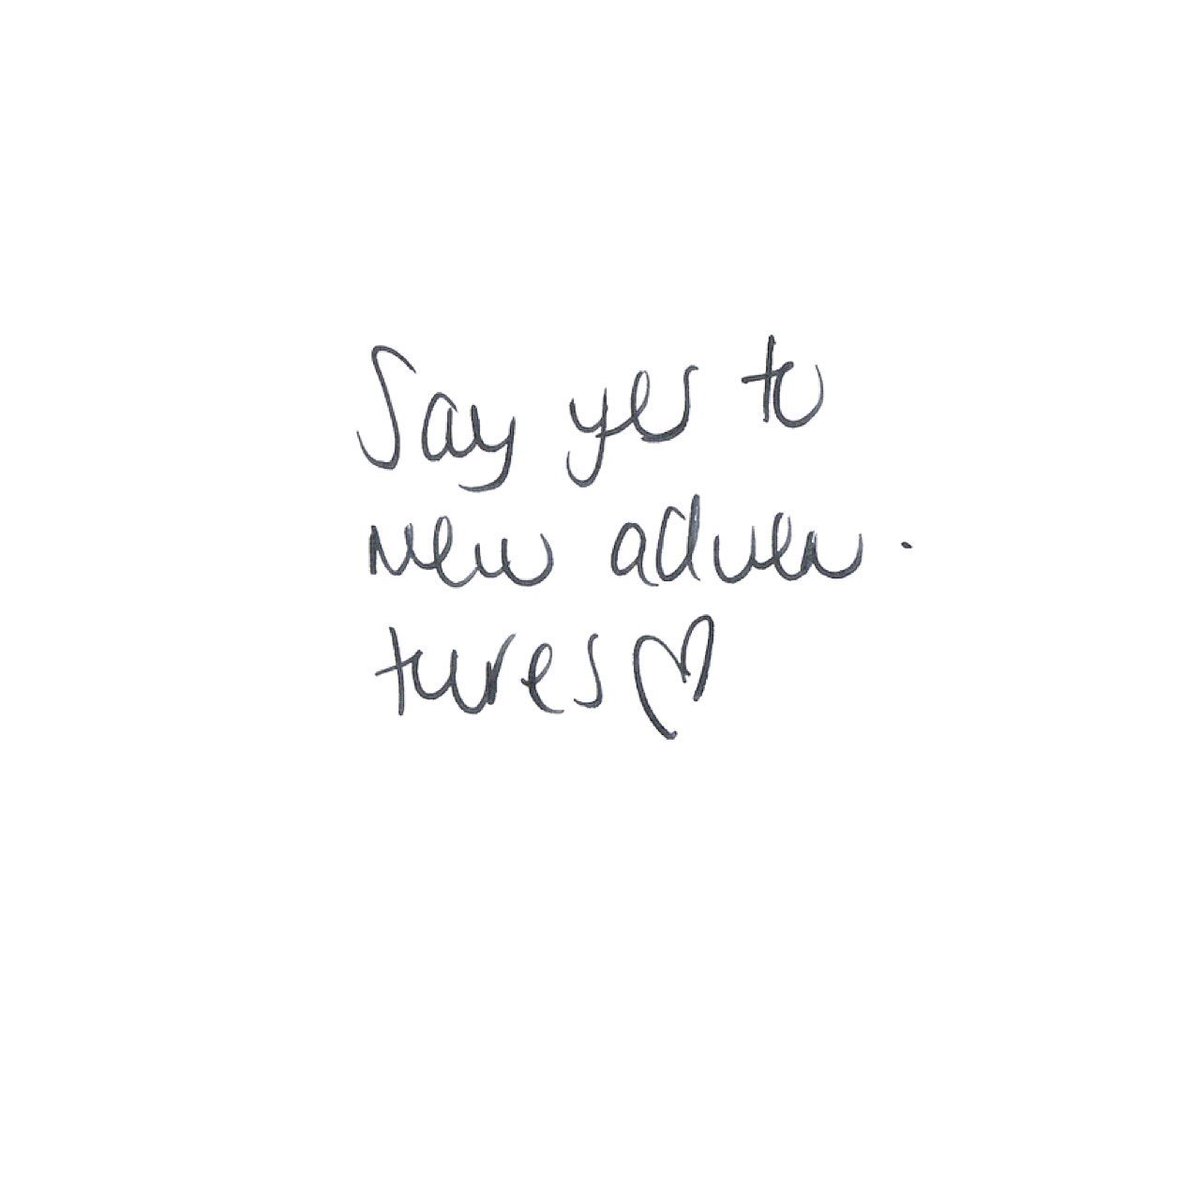 Say yes to
new adven.
tures♡